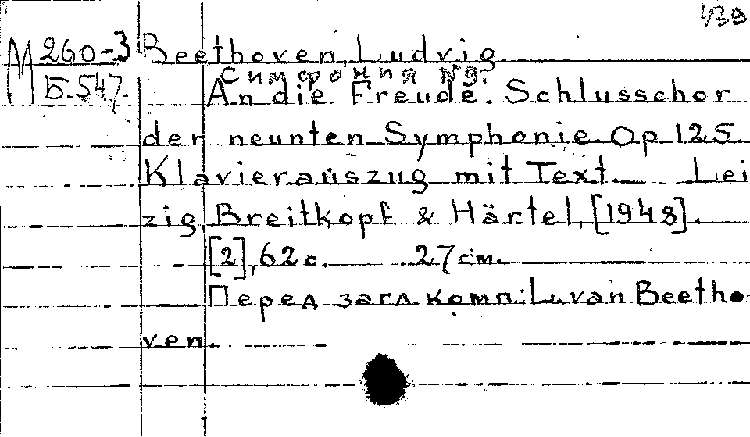 139
М 260-3 Beethoven, Ludvig
Б.547. Симфония №9.
An die Freude. Schlusschor
der neunten Symphonie. Op 125
Klavierauszug mit Text. Lei
zig, Breitkopf & Härtel, [1948].
[2], 62 с. 27 см.
Перед загл. комп: L. van Beetho
ven.